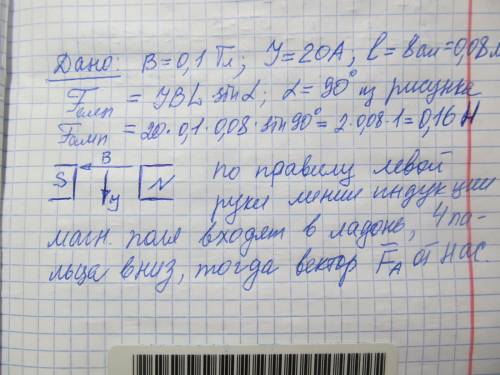 Дано: B=0,1 Тл; У=20А; l=8см=0,08м
Fамп = УBL sin L; L=90° из рисунка
Fамп = 20·0,1·0,08·sin 90°=2·0,08·1=0,16 Н
B
S У N
по правилу левой
руки линии индукции
магн. поля входят в ладонь, 4 па-
льца вниз, тогда вектор FА от нас.